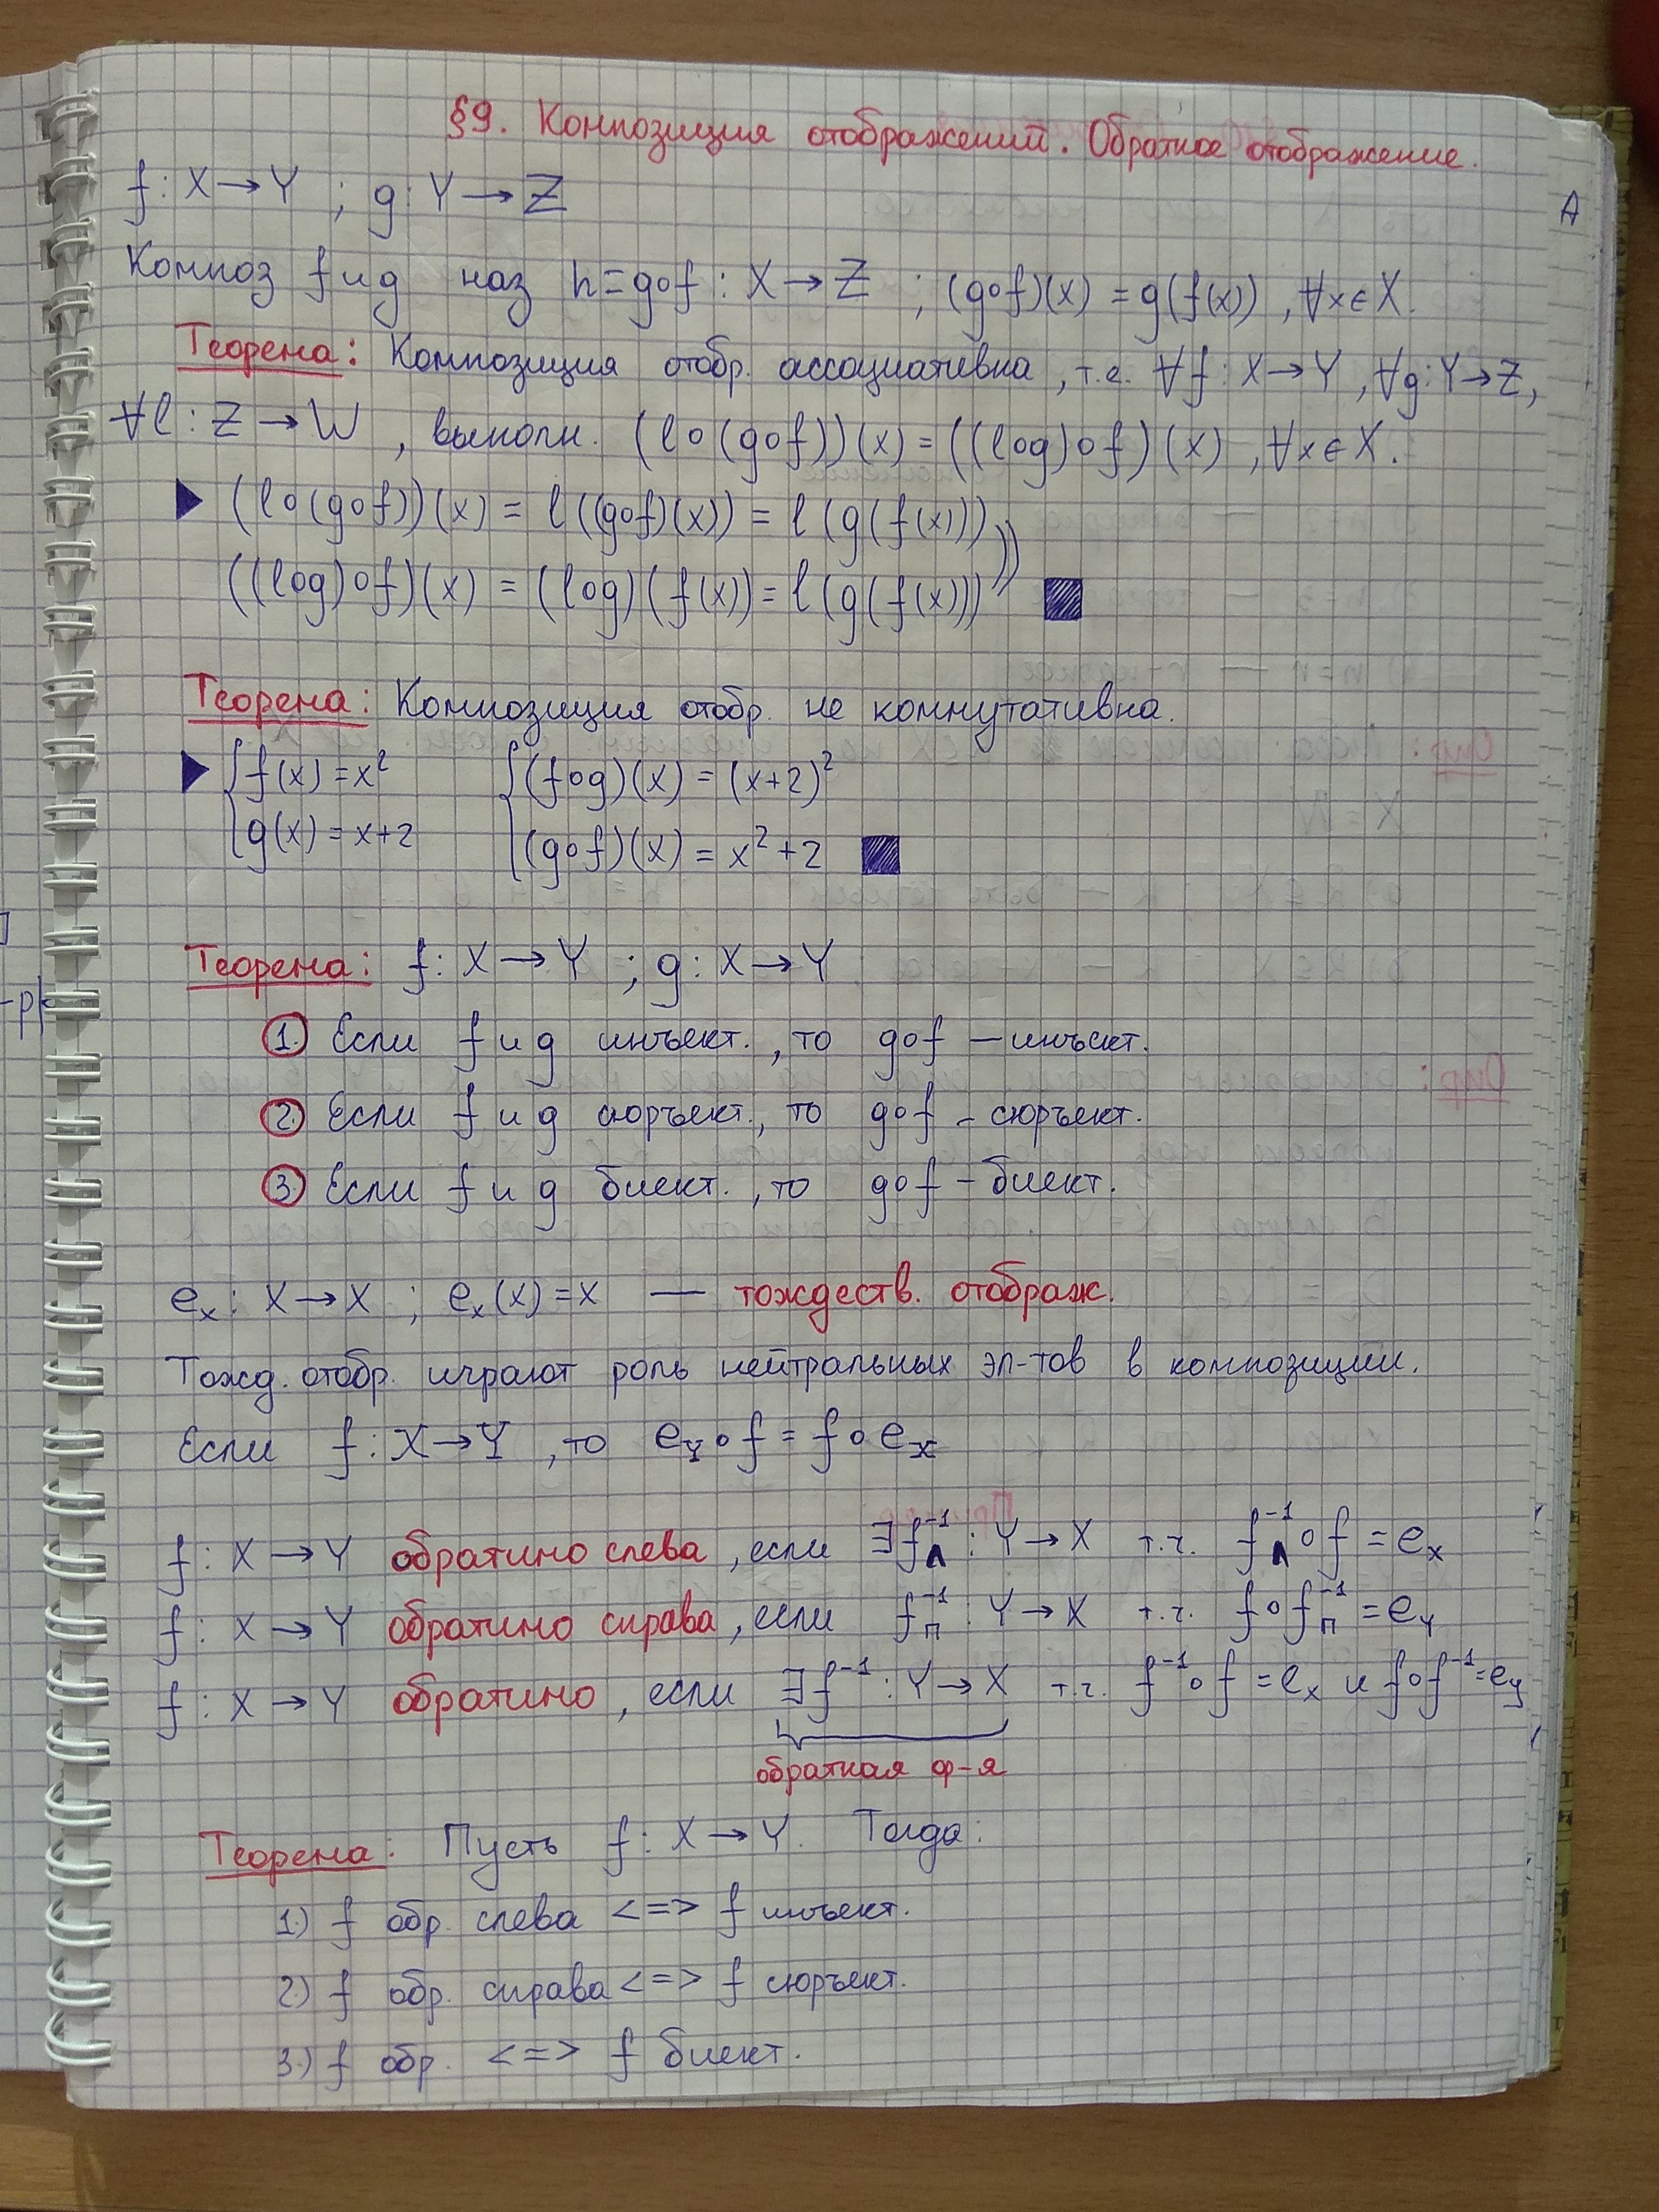 §9. Композиция отображений. Обратное отображение.
f : X → Y ; g : Y → Z
A
Композ f и g наз h = g∘f : X → Z ; (g∘f)(x) = g(f(x)) , ∀x ∈ X.
Теорема: Композиция отобр. ассоциативна, т.е. ∀f : X → Y, ∀g : Y → Z,
∀l : Z → W , выполн. (l∘(g∘f))(x) = ((l∘g)∘f)(x) , ∀x ∈ X.
▶ (l∘(g∘f))(x) = l((g∘f)(x)) = l(g(f(x)))
((l∘g)∘f)(x) = (l∘g)(f(x)) = l(g(f(x)))
Теорема: Композиция отобр. не коммутативна.
▶ { f(x) = x² { (f∘g)(x) = (x+2)²
g(x) = x+2 (g∘f)(x) = x²+2
Теорема: f : X → Y ; g : X → Y
1. Если f и g инъект., то g∘f – инъект.
2. Если f и g сюръект., то g∘f – сюръект.
3. Если f и g биект., то g∘f – биект.
eₓ : X → X ; eₓ(x) = x — тождеств. отображ.
Тожд. отобр. играют роль нейтральных эл-тов в композиции.
Если f : X → Y , то e_Y∘f = f∘e_X
f : X → Y обратимо слева, если ∃f⁻¹_Л : Y → X т.ч. f⁻¹_Л∘f = e_X
f : X → Y обратимо справа, если f⁻¹_п : Y → X т.ч. f∘f⁻¹_п = e_Y
f : X → Y обратимо, если ∃f⁻¹ : Y → X т.ч. f⁻¹∘f = e_X и f∘f⁻¹ = e_y
обратная ф-я
Теорема: Пусть f : X → Y. Тогда:
1.) f обр. слева <=> f инъект.
2.) f обр. справа <=> f сюръект.
3.) f обр. <=> f биект.